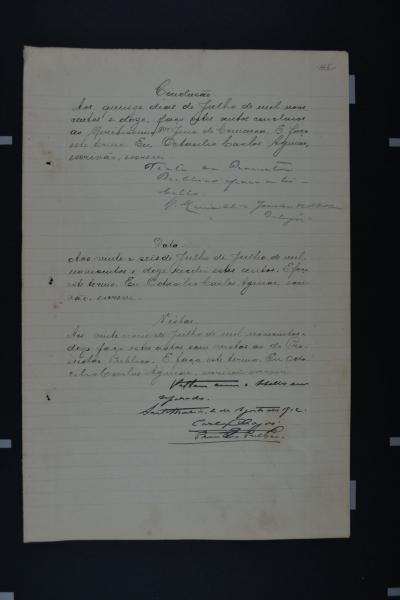 Conclusão
Aos quinze dias de Julho de mil nove
centos e doze, faço estes autos conclusos
ao Meritissimo Juiz da Comarca. E faço
este termo. Eu Octacilio Carlos Aguiar,
escrivão, escrevi
Vista ao Promotor
Publico para o li-
bello.
Data
Aos vinte e seis de Julho de Julho de mil
novecentos e doze recebi estes autos. E faço
este termo. Eu Octacilio Carlos Aguiar escri
vão, escrevi.
Vistas
Aos vinte nove de Julho de mil novecentos e
doze faço estes autos com vistas ao dr Pro-
motor Publico. E faço este termo. Eu Octa
cilio Carlos Aguiar, escrivão escrevi
com o libello em
separado.
Santa Maria, 2 de Agosto de 912.